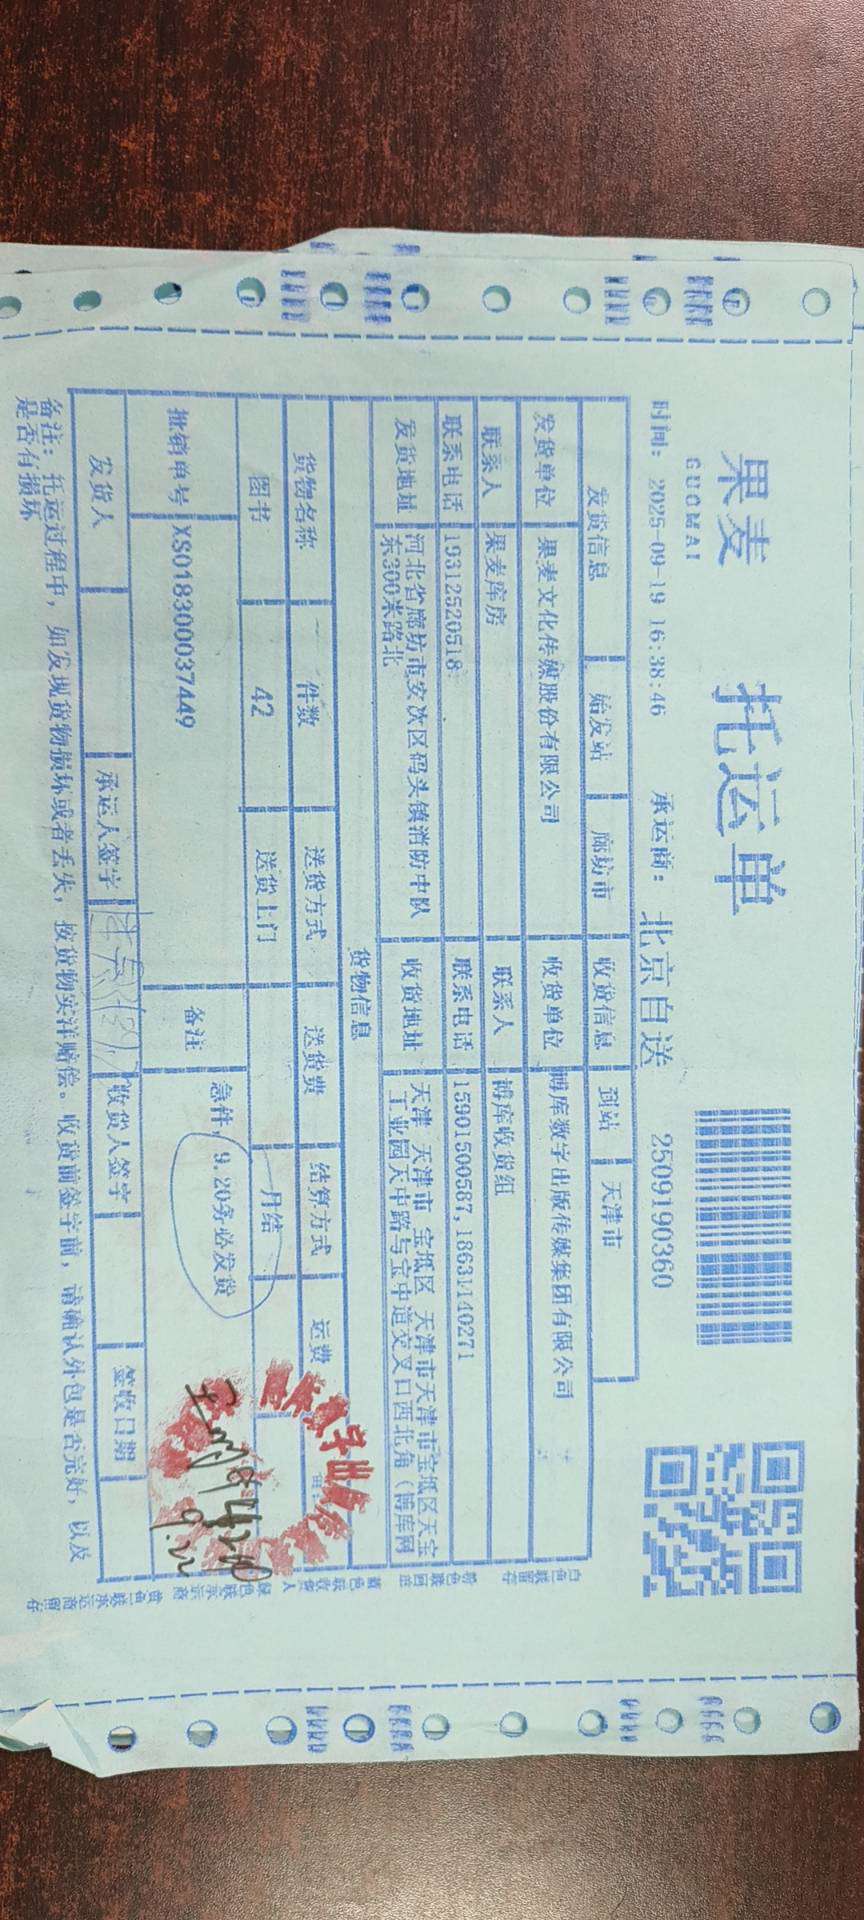 果麦
GUOMAI
托运单
时间: 2025-09-19 16:38:46 承运商: 北京自送 2509190360
发货信息 始发站 廊坊市 收货信息 到站 天津市
发货单位 果麦文化传媒股份有限公司 收货单位 博库数字出版传媒集团有限公司
联系人 果麦库房 联系人 博库收货组
联系电话 19312520518 联系电话 15901500587,18631140271
发货地址 河北省廊坊市安次区码头镇消防中队
东300米路北
收货地址 天津 天津市 宝坻区 天津市天津市宝坻区天宝
工业园天中路与宝中道交叉口西北角（博库网
货物信息
货物名称 件数 送货方式 送货费 结算方式 运费
图书 42 送货上门 月结
批销单号 XS018300037449 备注 急件, 9.20务必发货
发货人 承运人签字 收货人签字 签收日期
备注: 托运过程中, 如发现货物损坏或者丢失, 按货物实洋赔偿。收货前签字前, 请确认外包是否完好, 以及
是否有损坏
白色联留存 粉色联回底 蓝色联收货人 绿色联承运商 黄色联承运商留存
9.22